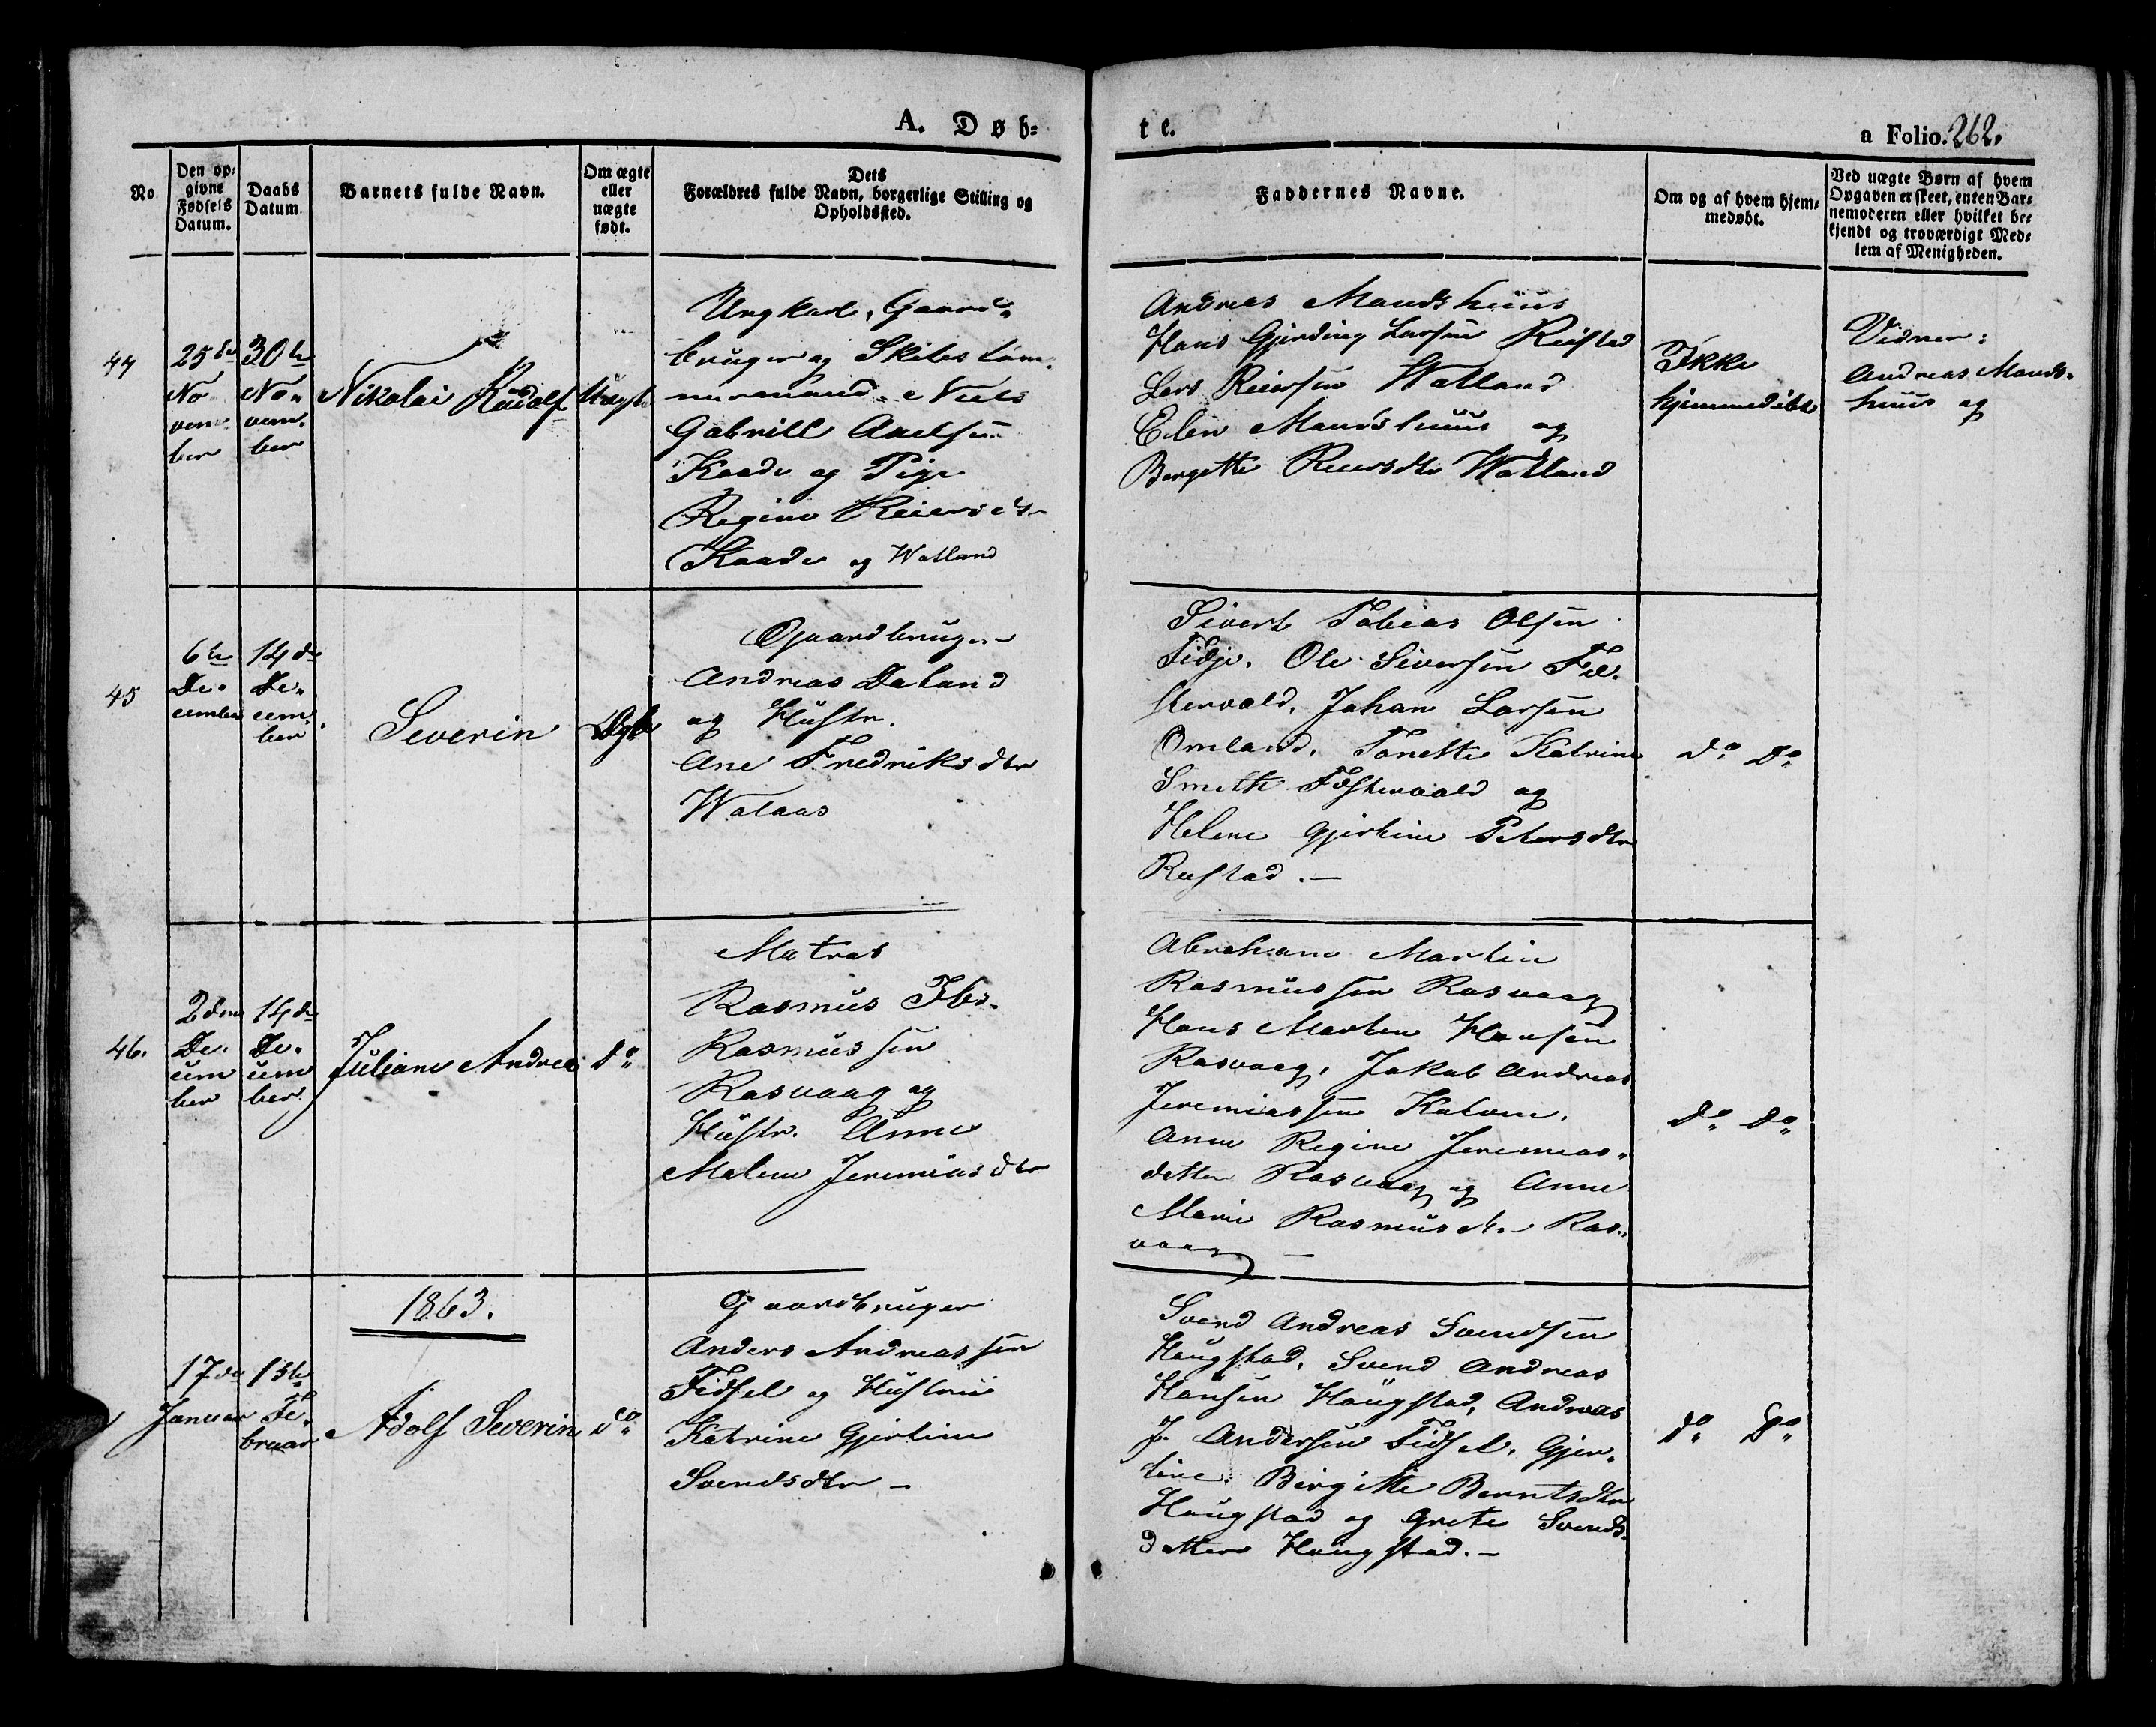 A. Døb=
te.
a Folio. 262.
No.
Den op=
givne
Fødsels
Datum.
Daabs
Datum.
Barnets fulde Navn.
Om ægte
eller
uægte
født.
Dets
Forældres fulde Navn, borgerlige Stilling og
Opholdssted.
Faddernes Navne.
Om og af hvem hjem=
medøbt.
Ved uægte Børn af hvem
Opgaven er skeet, enten Bar=
nemoderen eller hvilket be=
kjendt og troværdigt Med=
lem af Menigheden.
44
25de
No
vem
ber
30te
No
vem.
ber
Nikolai Rudolf
Uægte
Ungkarl, Gaard
bruger og Skibstøm
mermand Niels
Gabriell Axelsen
Kaade og Pige
Regine Reiersdtr
Kaade og Watland
Andreas Maudshuus
Hans Gjerding Larsen Reistad
Lars Reiersen Watland
Elen Maudshuus og
Bergette Reiersdtr Watland
Ikke
hjemmedøbt
Vidner:
Andreas Mauds=
huus og
45
6te
De=
cember
14de
De=
cem
ber
Severin
Ægte
Gaardbruger
Andreas Daland
og Hustr.
Ane Fredriksdtr
Walaas
Sivert Tobias Olsen
Tidje, Ole Siversen
Johan Larsen
Omland, Tonette Katrine
Smeth og
Helene Gjertine Petersdtr
Reistad. —
do do
46.
2den
De=
cem
ber
14de
De=
cem
ber
Juliane Andrea
do
Matros
Rasmus
Rasmussen
Rasvaag og
Hustr. Anne
Malene Jeremiasdtr
Abraham Martin
Rasmussen Rasvaag
Hans Martin Hansen
Rasvaag, Jakob Andreas
Jeremiassen
Anne Regine Jeremias=
datter Rasvaag og Anne
Marie Rasmusdtr Ras=
vaag —
do do
1863.
1
17de
Januar
15de
Fe=
bruar
Adolf Severin
do
Gaardbruger
Anders Andreassen
Fidsel og Hustrue
Katrine Gjertine
Svendsdtr —
Svend Andreas Svendsen
Haugstad, Svend Andreas
Hansen Haugstad, Andreas
J. Andersen Fidsel, Gjer=
tine Birgitte Berntsdtr
Haugstad og Grete Svends=
datter Haugstad. —
do do